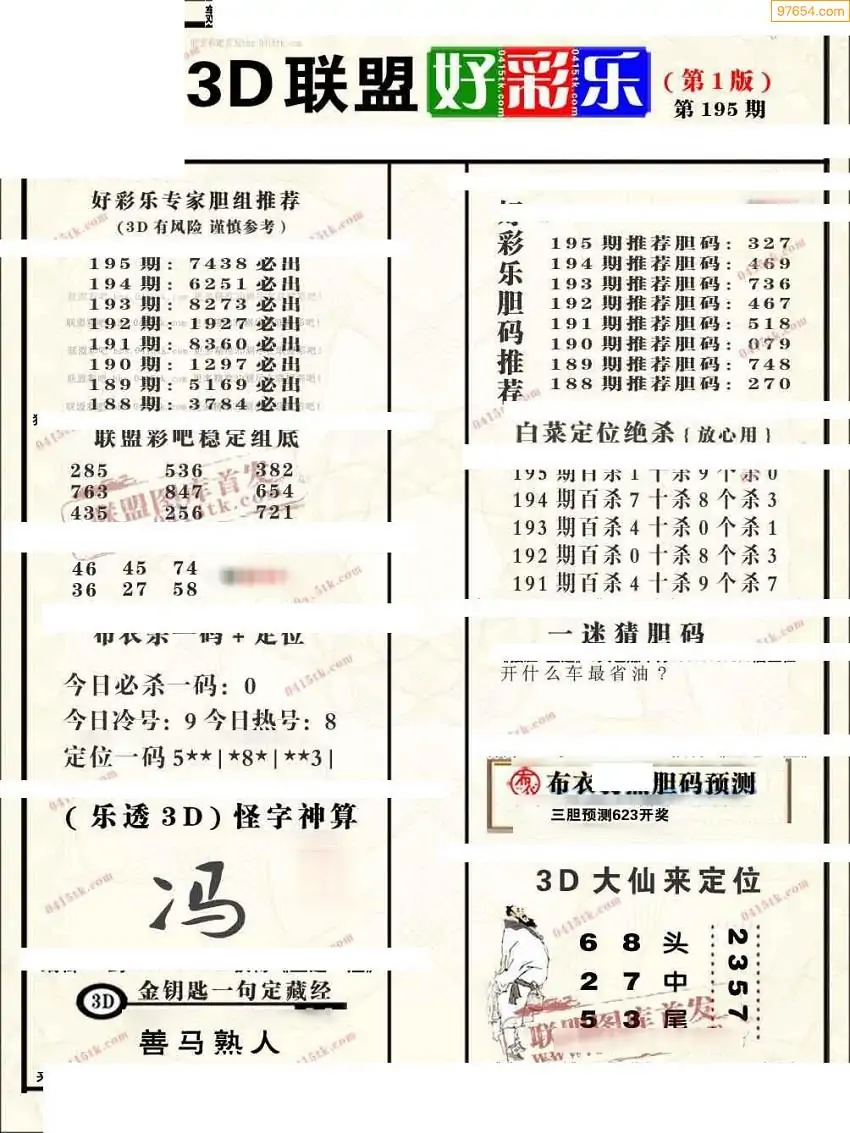 97654.com
3D联盟好彩乐(第1版)
第195期
好彩乐专家胆组推荐
(3D有风险 谨慎参考)
195期:7438必出
194期:6251必出
193期:8273必出
192期:1927必出
191期:8360必出
190期:1297必出
189期:5169必出
188期:3784必出
联盟彩吧稳定组底
285 536 382
763 847 654
435 256 721
46 45 74
36 27 58
布衣杀一码+定位
今日必杀一码:0
今日冷号:9 今日热号:8
定位一码5**|*8*|**3|
(乐透3D)怪字神算
冯
3D 金钥匙一句定藏经
善马熟人
好彩乐胆码推荐
195期推荐胆码:327
194期推荐胆码:469
193期推荐胆码:736
192期推荐胆码:467
191期推荐胆码:518
190期推荐胆码:079
189期推荐胆码:748
188期推荐胆码:270
白菜定位绝杀{放心用}
195期百杀1十杀9个杀0
194期百杀7十杀8个杀3
193期百杀4十杀0个杀1
192期百杀0十杀8个杀3
191期百杀4十杀9个杀7
一迷猜胆码
开什么车最省油?
布衣 胆码预测
三胆预测623开奖
3D大仙来定位
6 8 头
2 7 中
5 3 尾
2357
联盟图库首发
0415tk.com